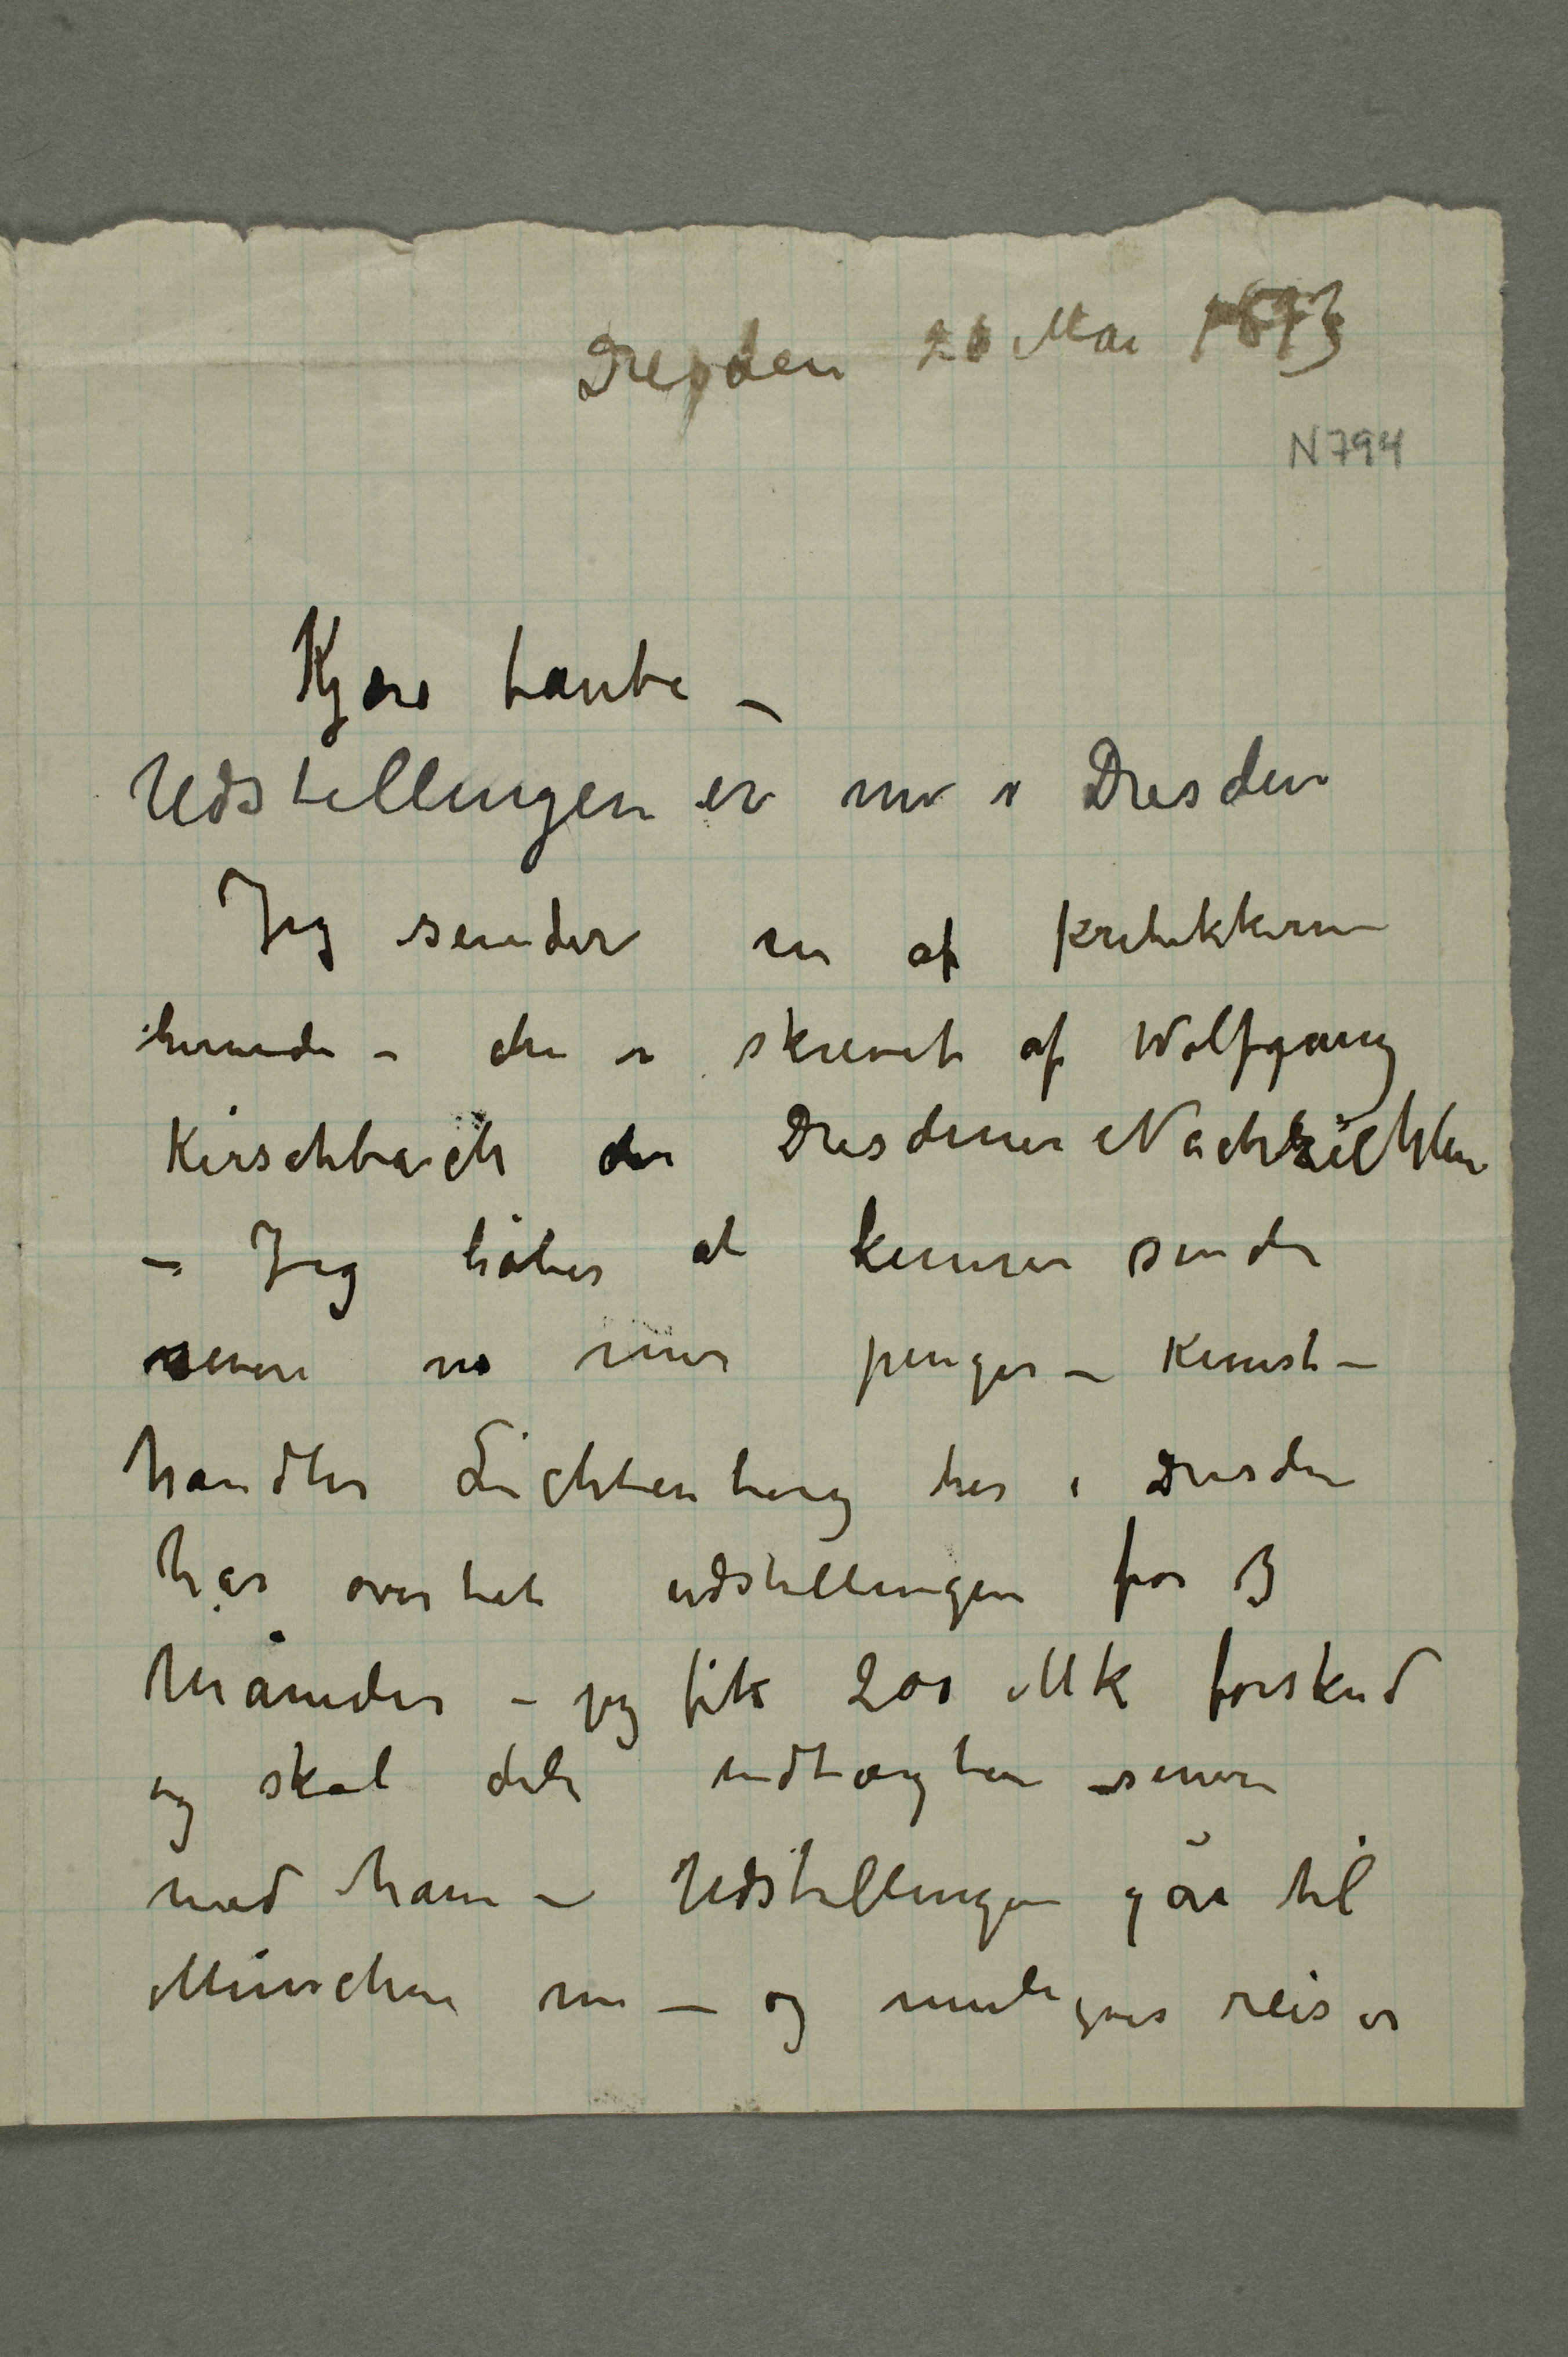 Dresden 26 Mai 1893
N 794
Kjære tante –
Udstellingen er nu i Dresden
Jeg sender en af kritikkerne
hernede – den er skrevet af Wolfgang
Kirschbach der Dresdener Nachrichten
– Jeg håber at kunne sende
mere penger – Kunst-
handler Lichtenberg her i Dresden
har overtat udstillingen for 3
Måneder – jeg fik 200 Mk forskud
og skal dele indtægten senere
med ham – Udstillingen går til
München nu – og muligens reiser